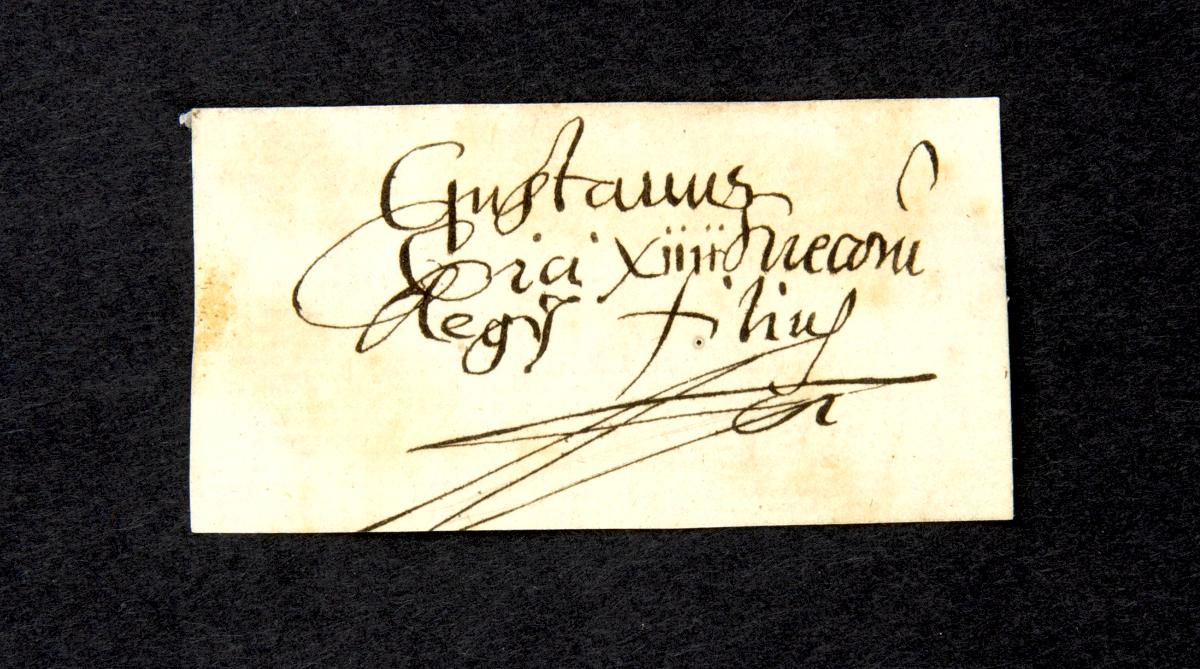 Gustauus
Erici XIIII Suecorū
Regis Filius